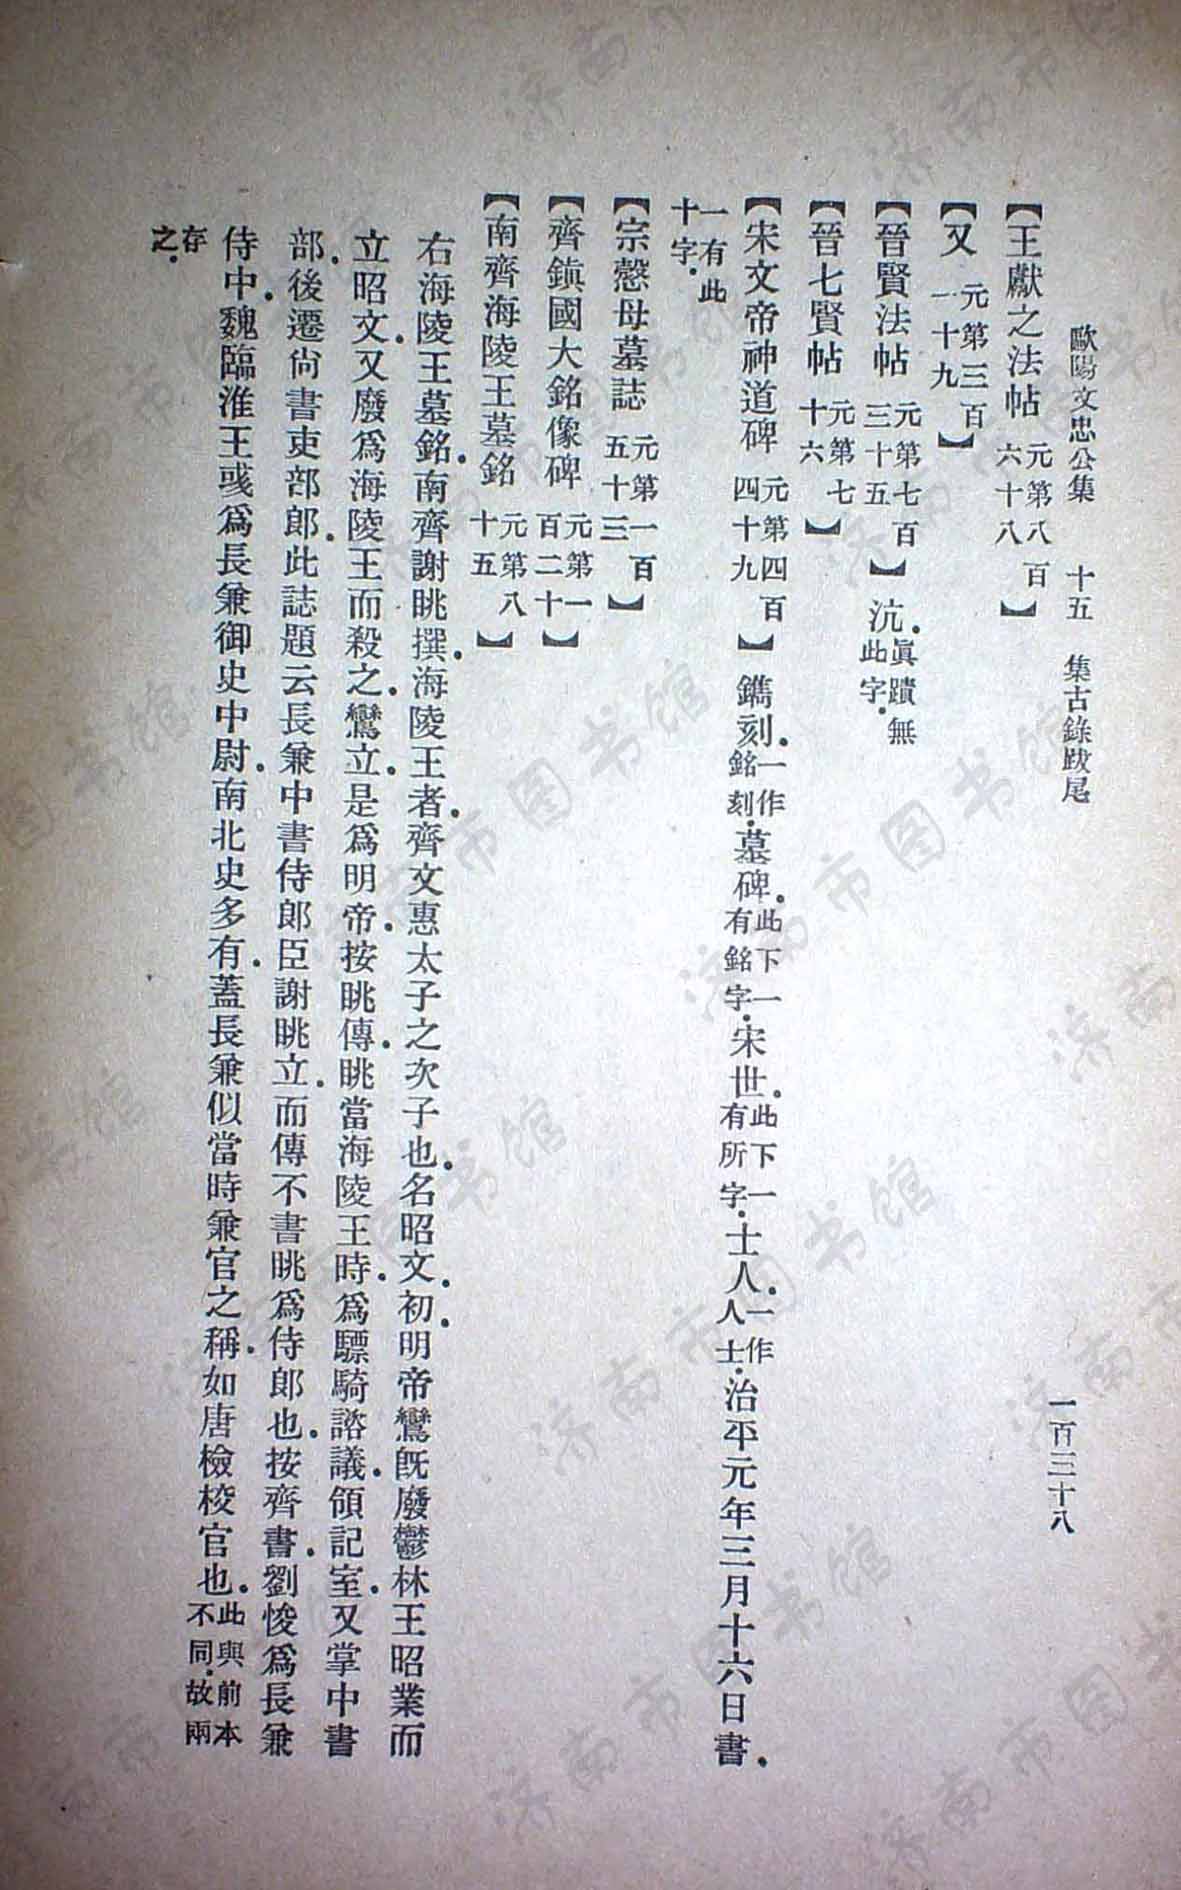 歐陽文忠公集　十五　集古錄跋尾　一百三十八
【王獻之法帖　元第八百六十八】
【又　元第三百一十九】
【晉賢法帖　元第七百三十五】沆．眞蹟無此字．
【晉七賢帖　元第七十六】
【宋文帝神道碑　元第四百四十九】鐫刻．一作銘刻．墓碑．此下一有銘字．宋世．此下一有所字．士人．一作人士．治平元年三月十六日書．
一有此十字．
【宗愨母墓誌　元第一百五十三】
【齊鎭國大銘像碑　元第一百二十】
【南齊海陵王墓銘　元第八十五】
右海陵王墓銘．南齊謝眺撰．海陵王者．齊文惠太子之次子也．名昭文．初．明帝鸞旣廢鬱林王昭業而
立昭文．又廢爲海陵王而殺之．鸞立．是爲明帝．按眺傳．眺當海陵王時．爲驃騎諮議．領記室．又掌中書
部．後遷尙書吏部郞．此誌題云長兼中書侍郞臣謝眺立．而傳不書眺爲侍郞也．按齊書．劉悛爲長兼
侍中．魏臨淮王彧爲長兼御史中尉．南北史多有．蓋長兼似當時兼官之稱．如唐檢校官也．此與前本不同．故兩
存之．
济南市图书馆